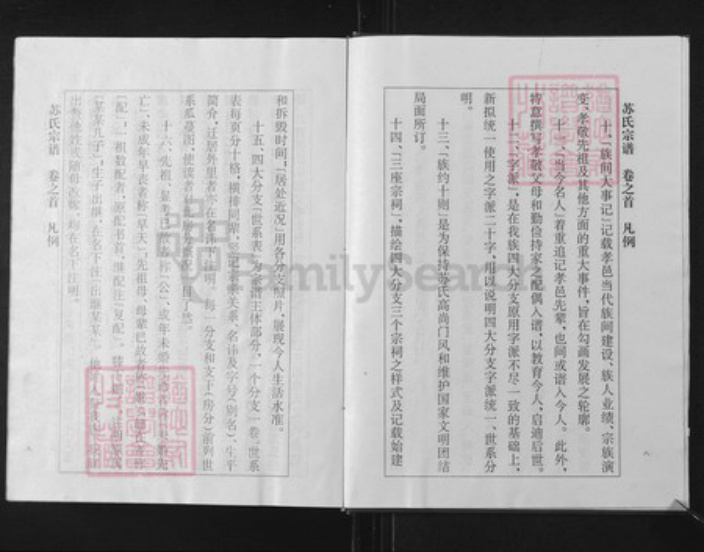 苏氏宗谱 卷之首 凡例
十、“族间大事记”记载孝邑当代族间建设、族人业绩、宗族演
变、孝敬先祖及其他方面的重大事件，旨在勾画发展之轮廓。
十一、“当今名人”着重追记孝邑先辈，也间或谱入今人。此外，
特意撰写孝敬父母和勤俭持家之配偶入谱，以教育今人、启迪后世。
十二、“字派”，是在我族四大分支原用字派不尽一致的基础上，
新拟统一使用之字派二十字，用以说明四大分支字派统一、世系分
明。
十三、“族约十则”是为保持苏氏高尚门风和维护国家文明团结
局面所订。
十四、“三座宗祠”，描绘四大分支三个宗祠之样式及记载始建
和拆毁时间，“居处近况”用各分支照片，展现今人生活水准。
十五、四大分支“世系表”，为宗谱主体部分，一个分支一卷，世系
表每页分十格，横排同辈，竖记关系、名讳及字号（别名）、生平
简介，迁居外里者亦在名讳下注明。每一分支和支下（房分）前列世
系瓜蔓图，使读者
十六、先祖、显考已故者称“公”，成年未婚
亡”，未成年早丧者称“早夭”，先祖母、母辈已故者
“配”，一祖数配者，原配书首，继配注“复配”。
“某某几子”，生子出继，在名下注“出继某某”。
改族，均在名下注明。
苏氏宗谱 卷之首 凡例
FamilySearch